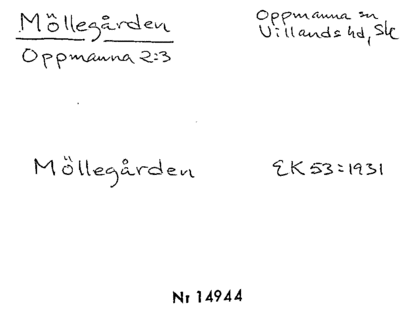 Möllegården
Oppmanna 2:3
Oppmanna sn
Villands hd, Sk
Möllegården
EK 53:1931
Nr 14944